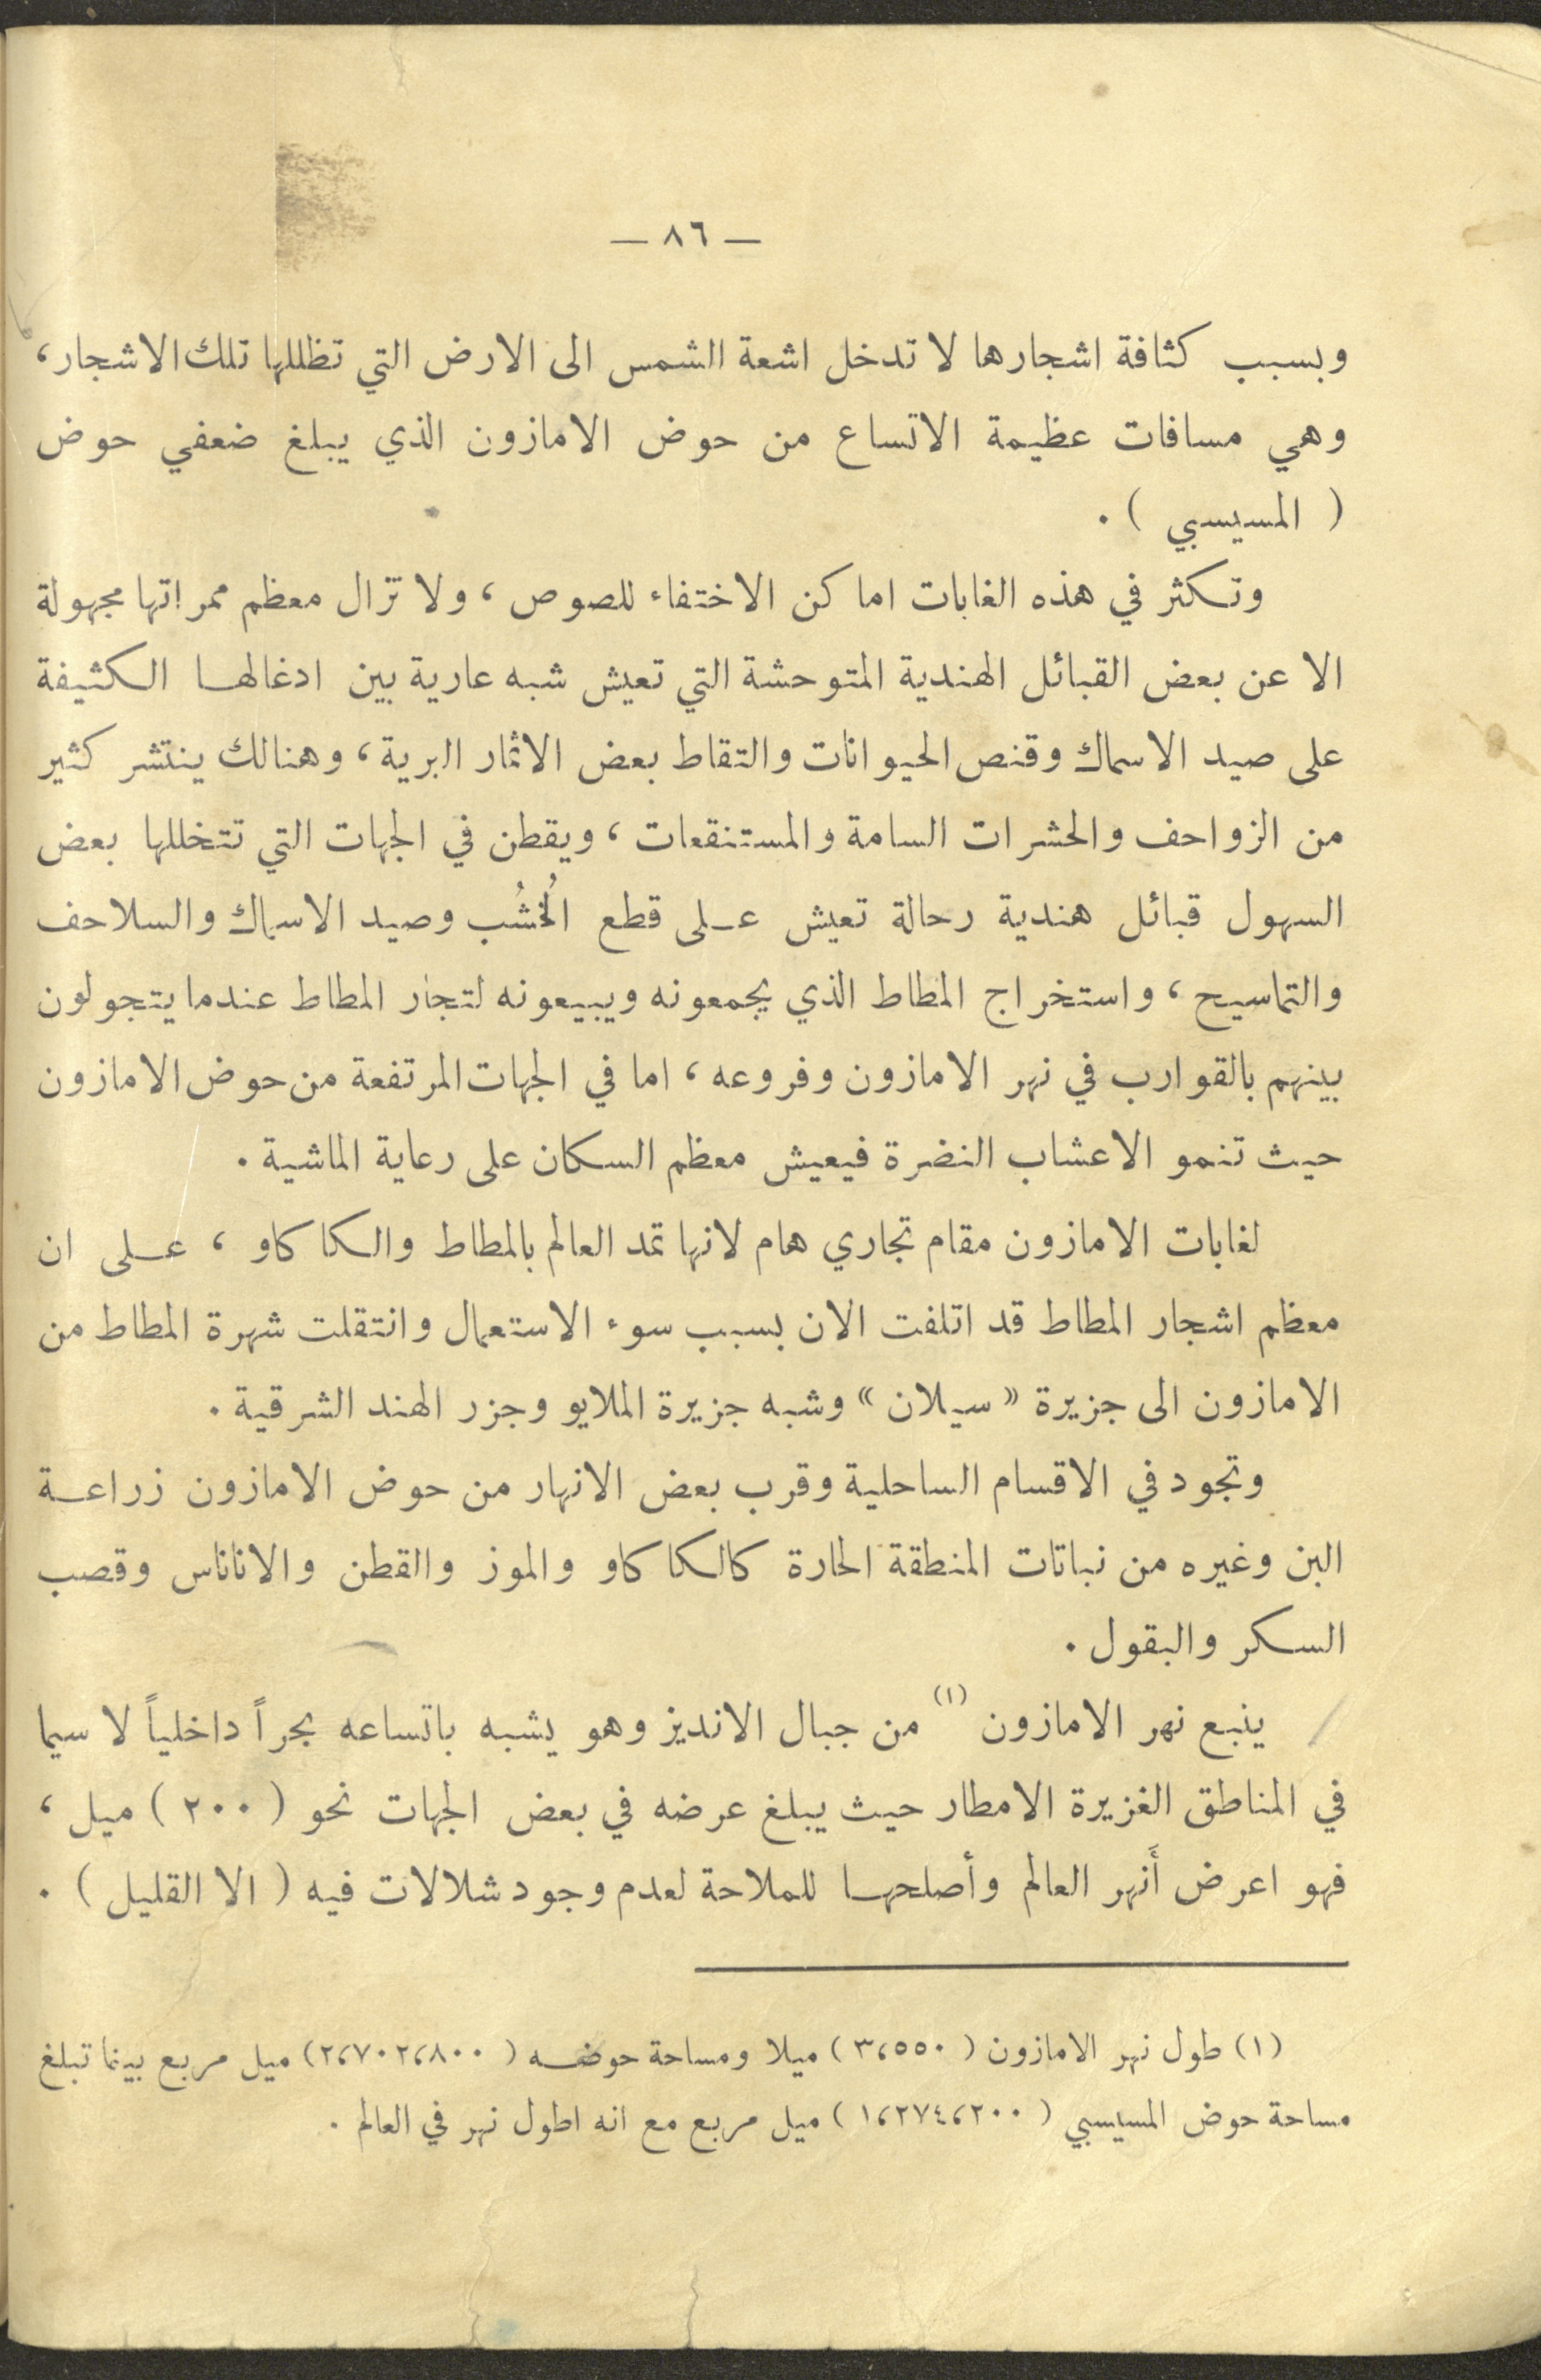 — ٨٦ —
وبسبب كثافة اشجارها لا تدخل اشعة الشمس الى الارض التي تظللها تلك الاشجار،
وهي مسافات عظيمة الاتساع من حوض الامازون الذي يبلغ ضعفي حوض
( المسيسبي ) .
وتكثر في هذه الغابات اماكن الاختفاء للصوص ، ولا تزال معظم ممراتها مجهولة
الا عن بعض القبائل الهندية المتوحشة التي تعيش شبه عارية بين ادغالها الكثيفة
على صيد الاسماك وقنص الحيوانات والتقاط بعض الاثمار البرية ، وهنالك ينتشر كثير
من الزواحف والحشرات السامة والمستنقعات ، ويقطن في الجهات التي تتخللها بعض
السهول قبائل هندية رحالة تعيش على قطع الخُشُب وصيد الاسماك والسلاحف
والتماسيح ، واستخراج المطاط الذي يجمعونه ويبيعونه لتجار المطاط عندما يتجولون
بينهم بالقوارب في نهر الامازون وفروعه ، اما في الجهات المرتفعة من حوض الامازون
حيث تنمو الاعشاب النضرة فيعيش معظم السكان على رعاية الماشية .
لغابات الامازون مقام تجاري هام لانها تمد العالم بالمطاط والكاكاو ، على ان
معظم اشجار المطاط قد اتلفت الان بسبب سوء الاستعمال وانتقلت شهرة المطاط من
الامازون الى جزيرة « سيلان » وشبه جزيرة الملايو وجزر الهند الشرقية .
وتجود في الاقسام الساحلية وقرب بعض الانهار من حوض الامازون زراعة
البن وغيره من نباتات المنطقة الحارة كالكاكاو والموز والقطن والاناناس وقصب
السكر والبقول .
ينبع نهر الامازون (١) من جبال الانديز وهو يشبه باتساعه بحراً داخلياً لا سيما
في المناطق الغزيرة الامطار حيث يبلغ عرضه في بعض الجهات نحو ( ٢٠٠ ) ميل ،
فهو اعرض أَنهر العالم وأصلحها للملاحة لعدم وجود شلالات فيه ( الا القليل ) .
(١) طول نهر الامازون ( ٣،٥٥٠ ) ميلا ومساحة حوضه ( ٢،٧٠٢،٨٠٠ ) ميل مربع بينما تبلغ
مساحة حوض المسيسبي ( ١،٢٧٤،٢٠٠ ) ميل مربع مع انه اطول نهر في العالم .